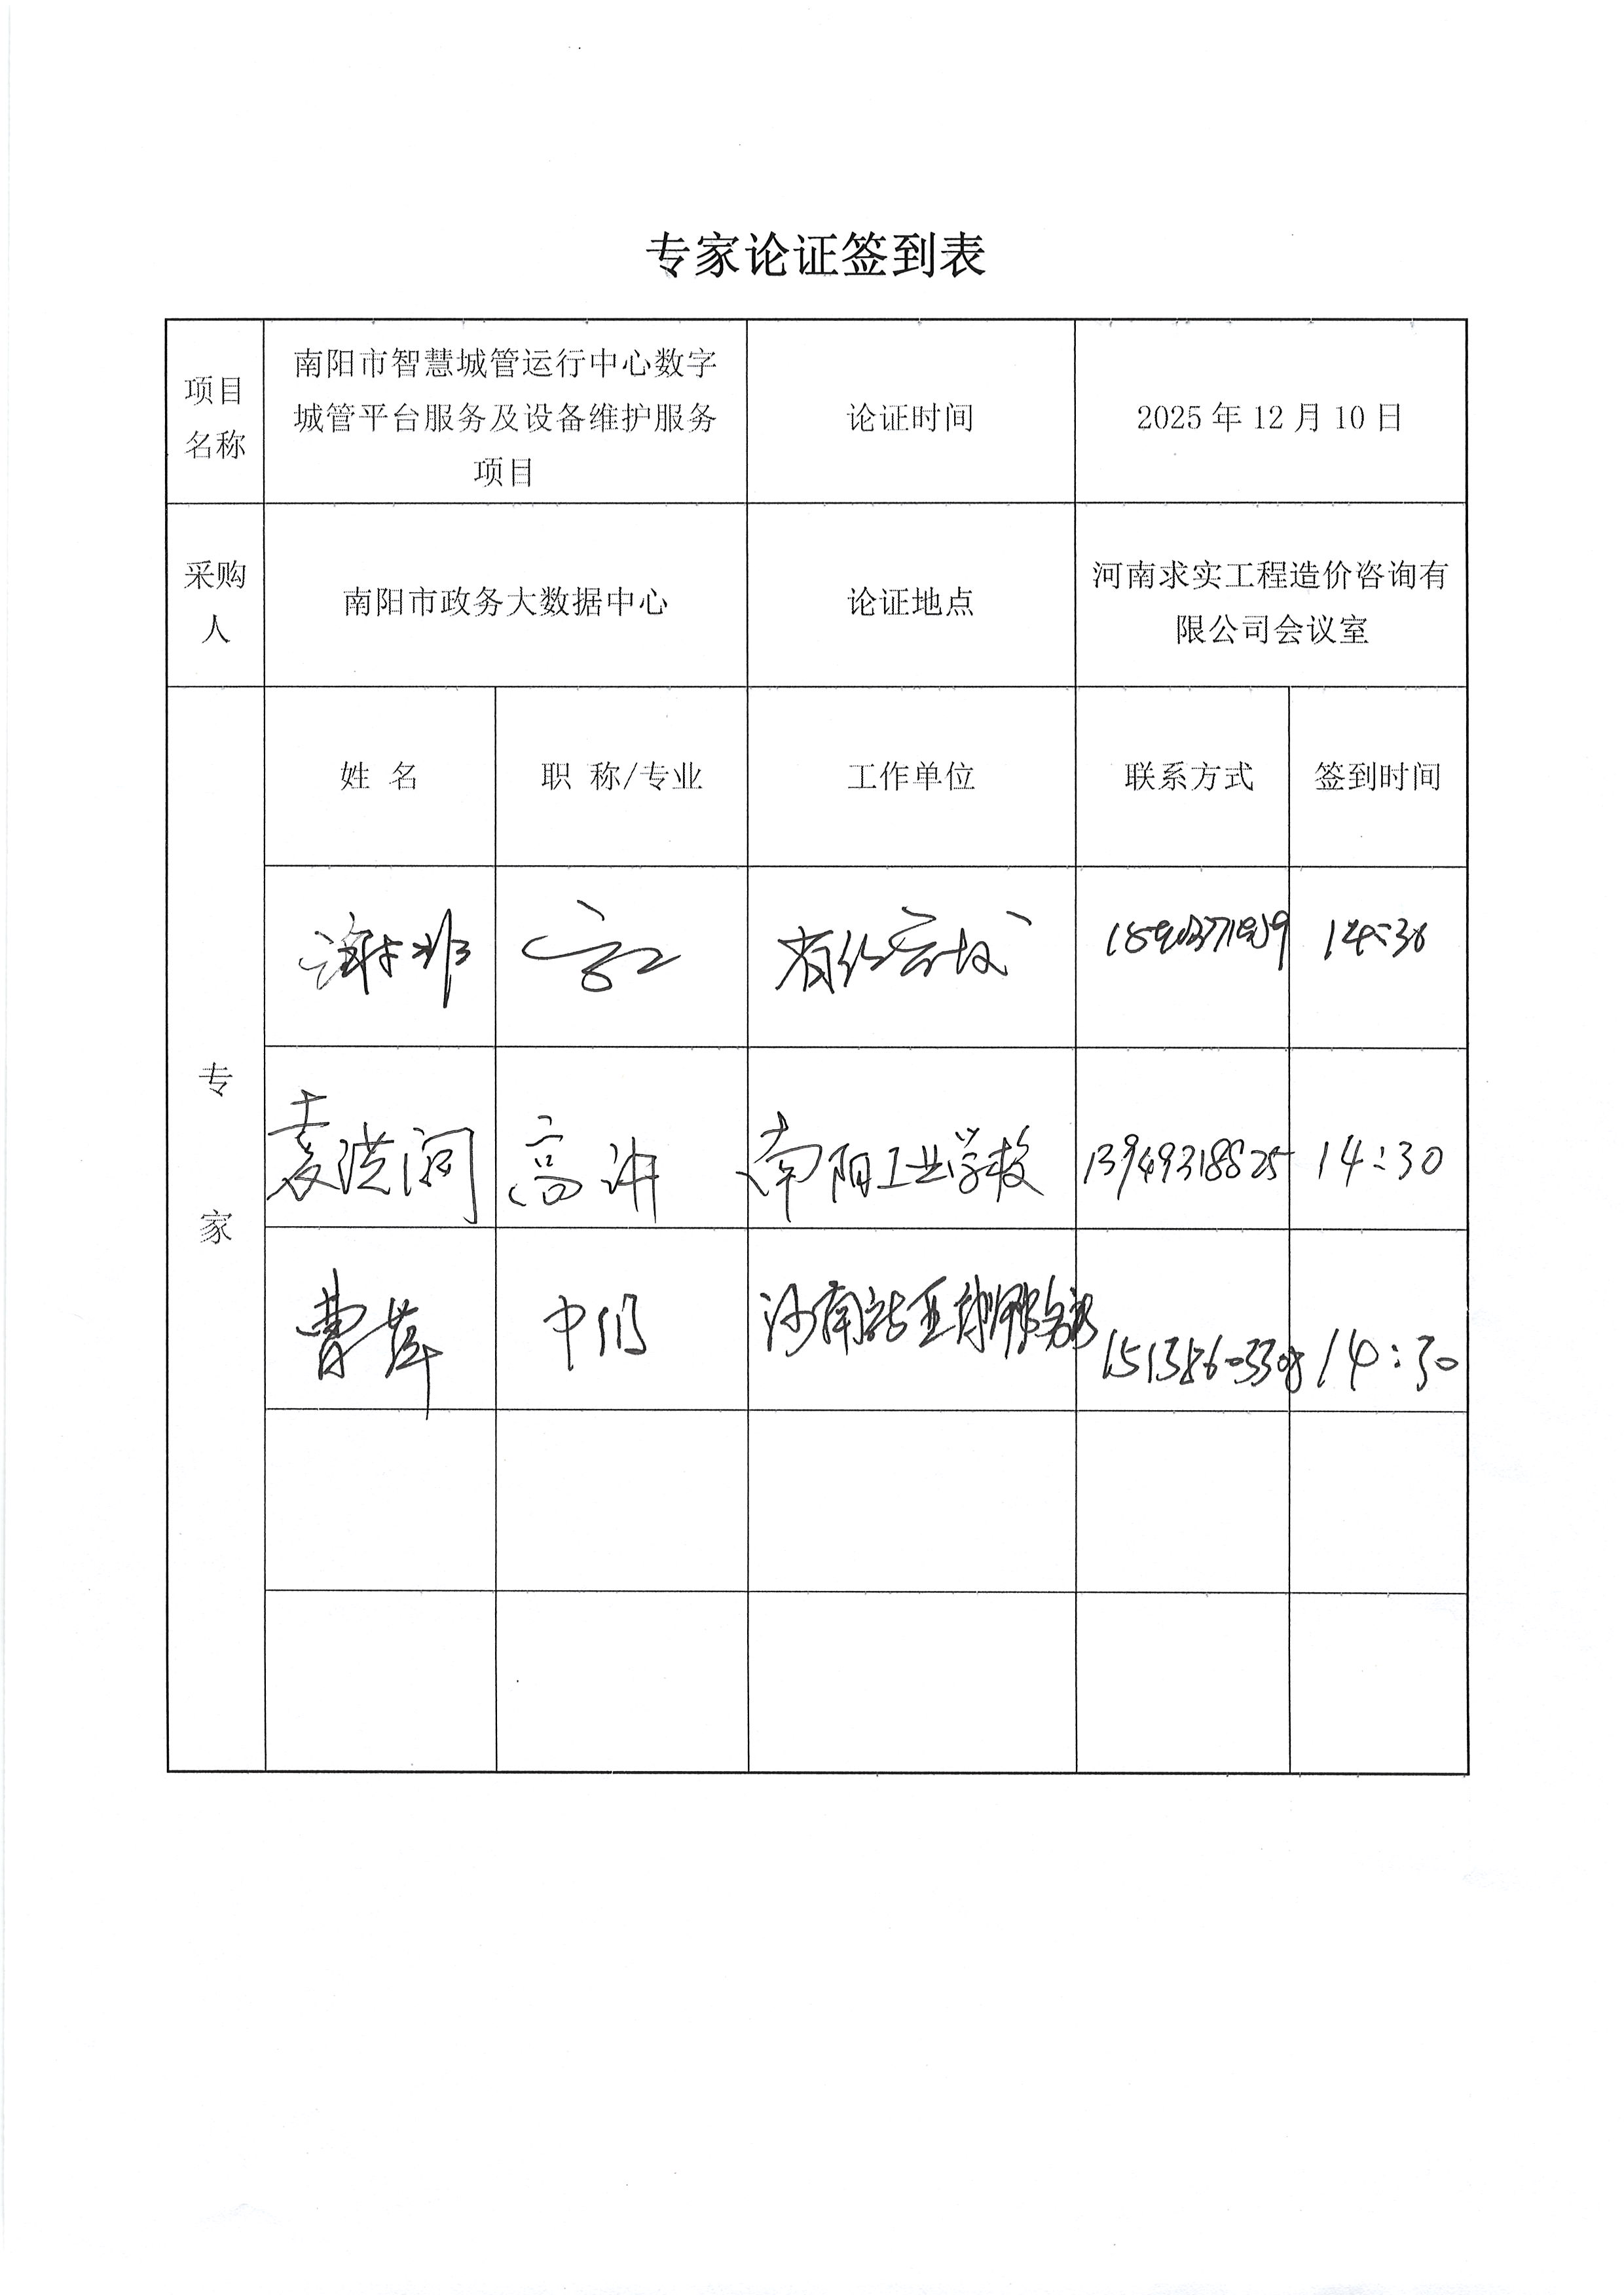 专家论证签到表
项目
名称
南阳市智慧城管运行中心数字
城管平台服务及设备维护服务
项目
论证时间
2025年12月10日
采购
人
南阳市政务大数据中心
论证地点
河南求实工程造价咨询有
限公司会议室
专
家
姓 名
职 称/专业
工作单位
联系方式
签到时间
高工
14:30
袁洪润
高讲
南阳工业学校
13949318825
14:30
曹萍
14:30